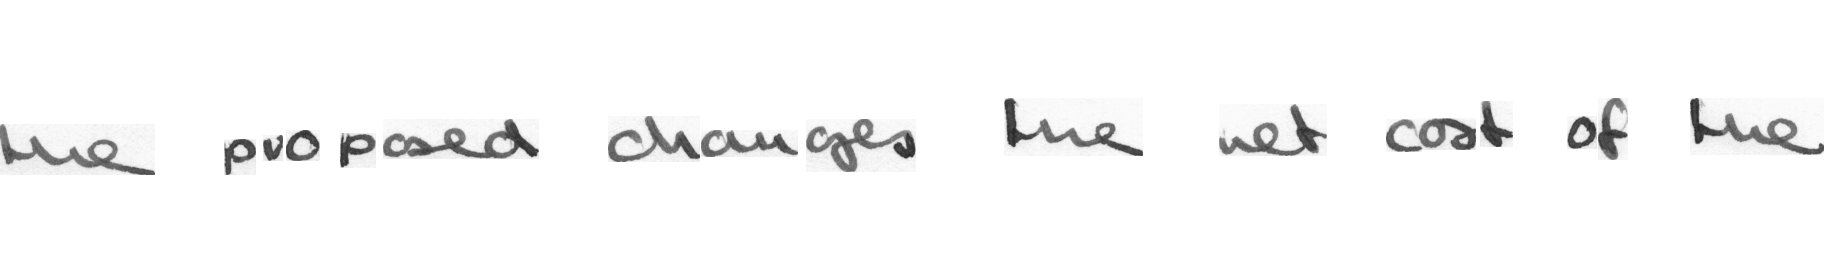 the proposed changes the net cost of the